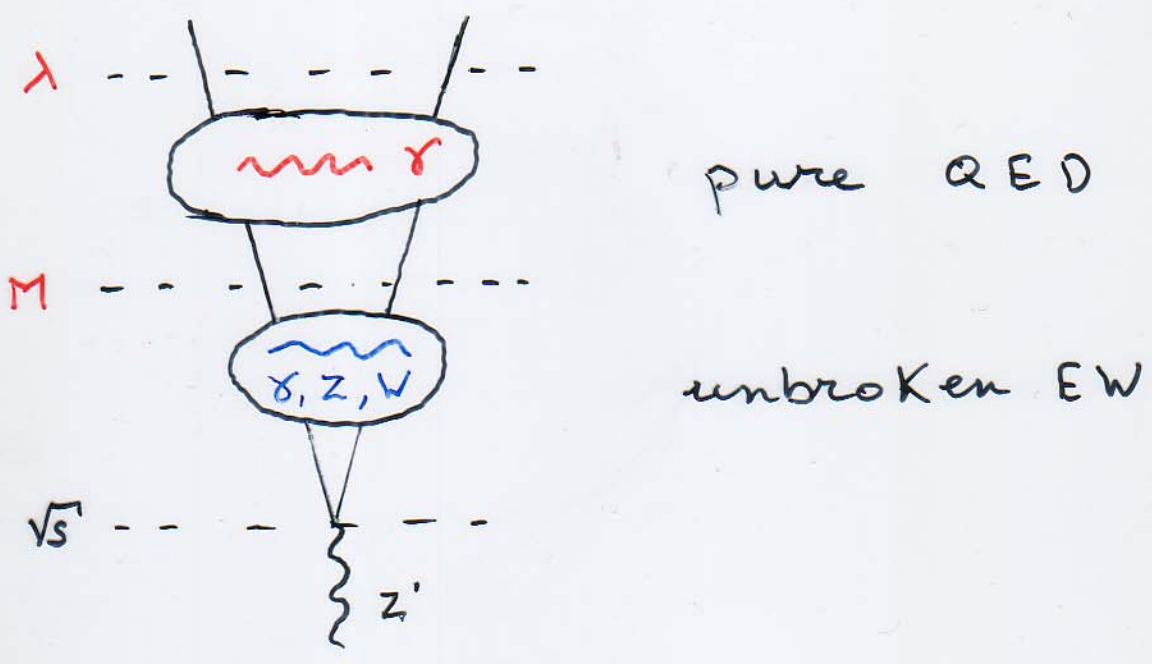 λ
γ
pure QED
M
γ, Z, W
unbroken EW
√s
Z'